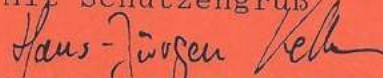 Mit Schützengruß
Hans-Jürgen